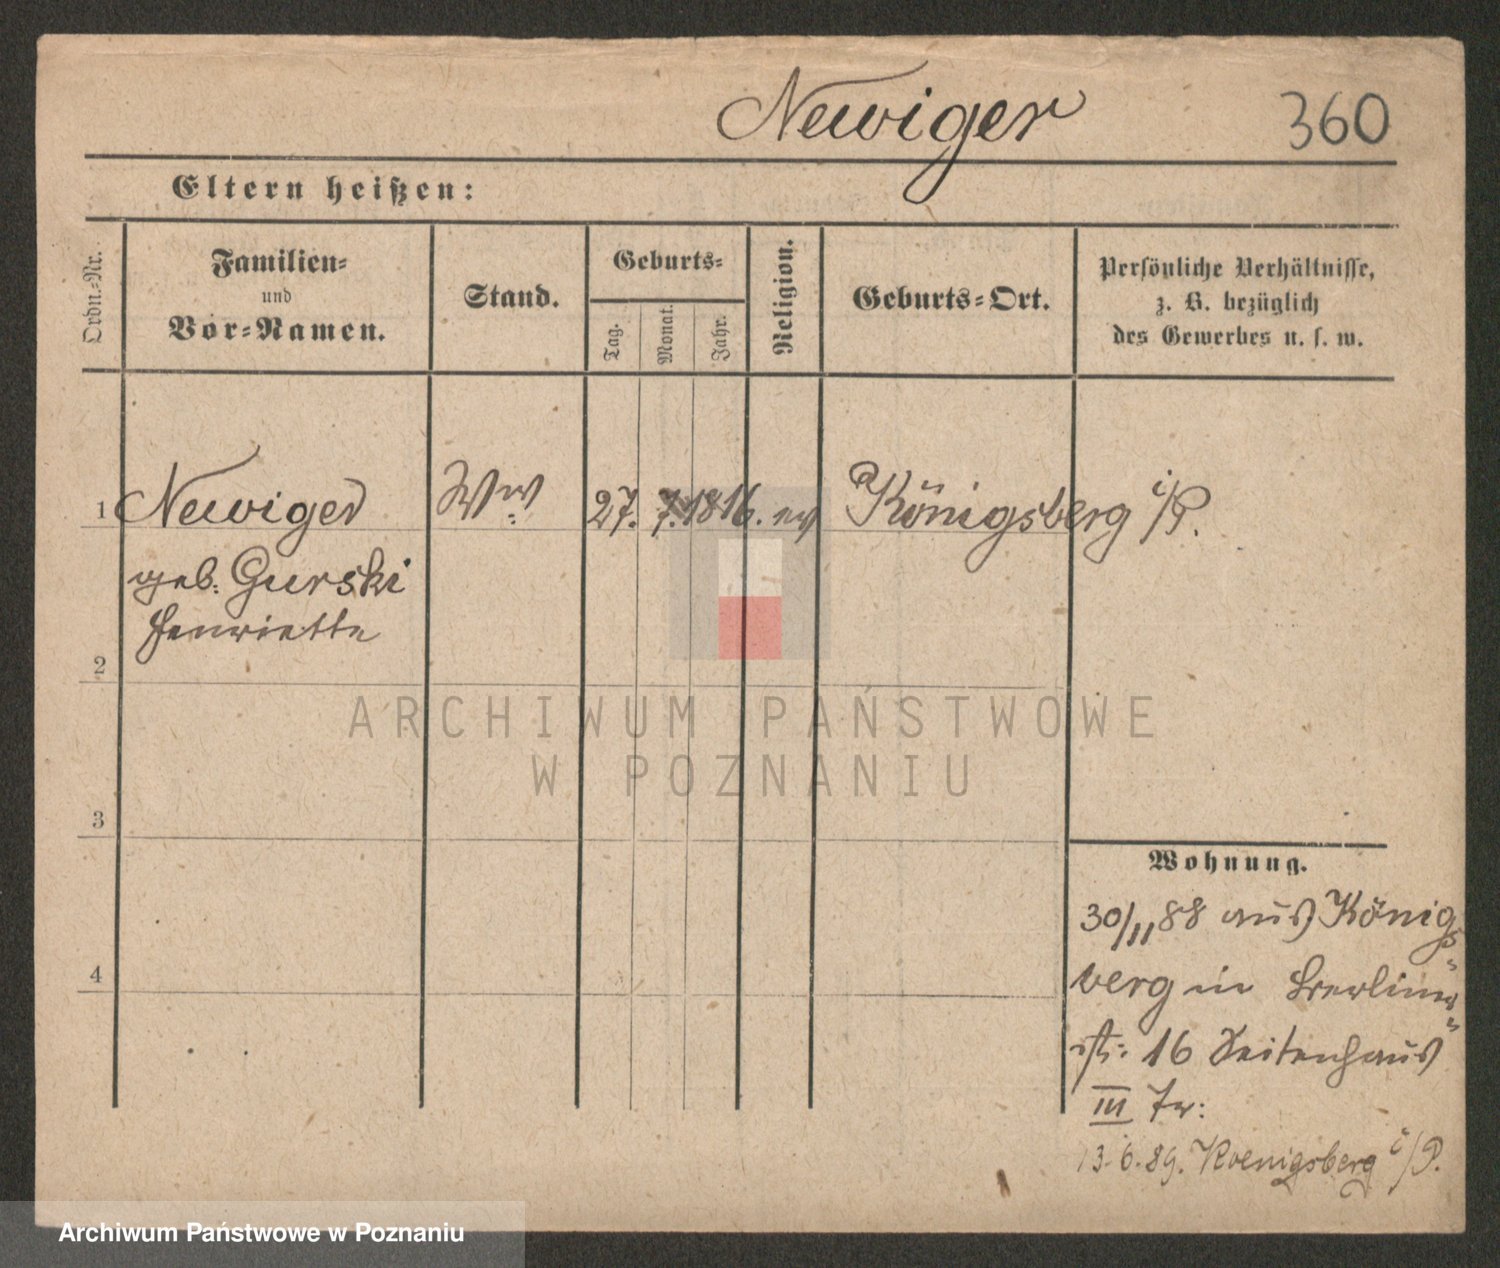 Newiger 360
Eltern heißen:
Ordn.-Nr.
Familien-
und
Vor-Namen.
Stand.
Geburts-
Tag.
Monat.
Jahr.
Religion.
Geburts-Ort.
Persönliche Verhältnisse,
z. B. bezüglich
des Gewerbes u. s. w.
1 Newiger Ww: 27. 7. 1816. ev Königsberg i/P.
geb. Gurski
Henriette
2
3
4
Wohnung.
30/11 88 aus Königs-
berg in Berliner-
str: 16 Seitenhaus
III Tr:
13.6.89. Koenigsberg i/P.
ARCHIWUM PAŃSTWOWE
W POZNANIU
Archiwum Państwowe w Poznaniu